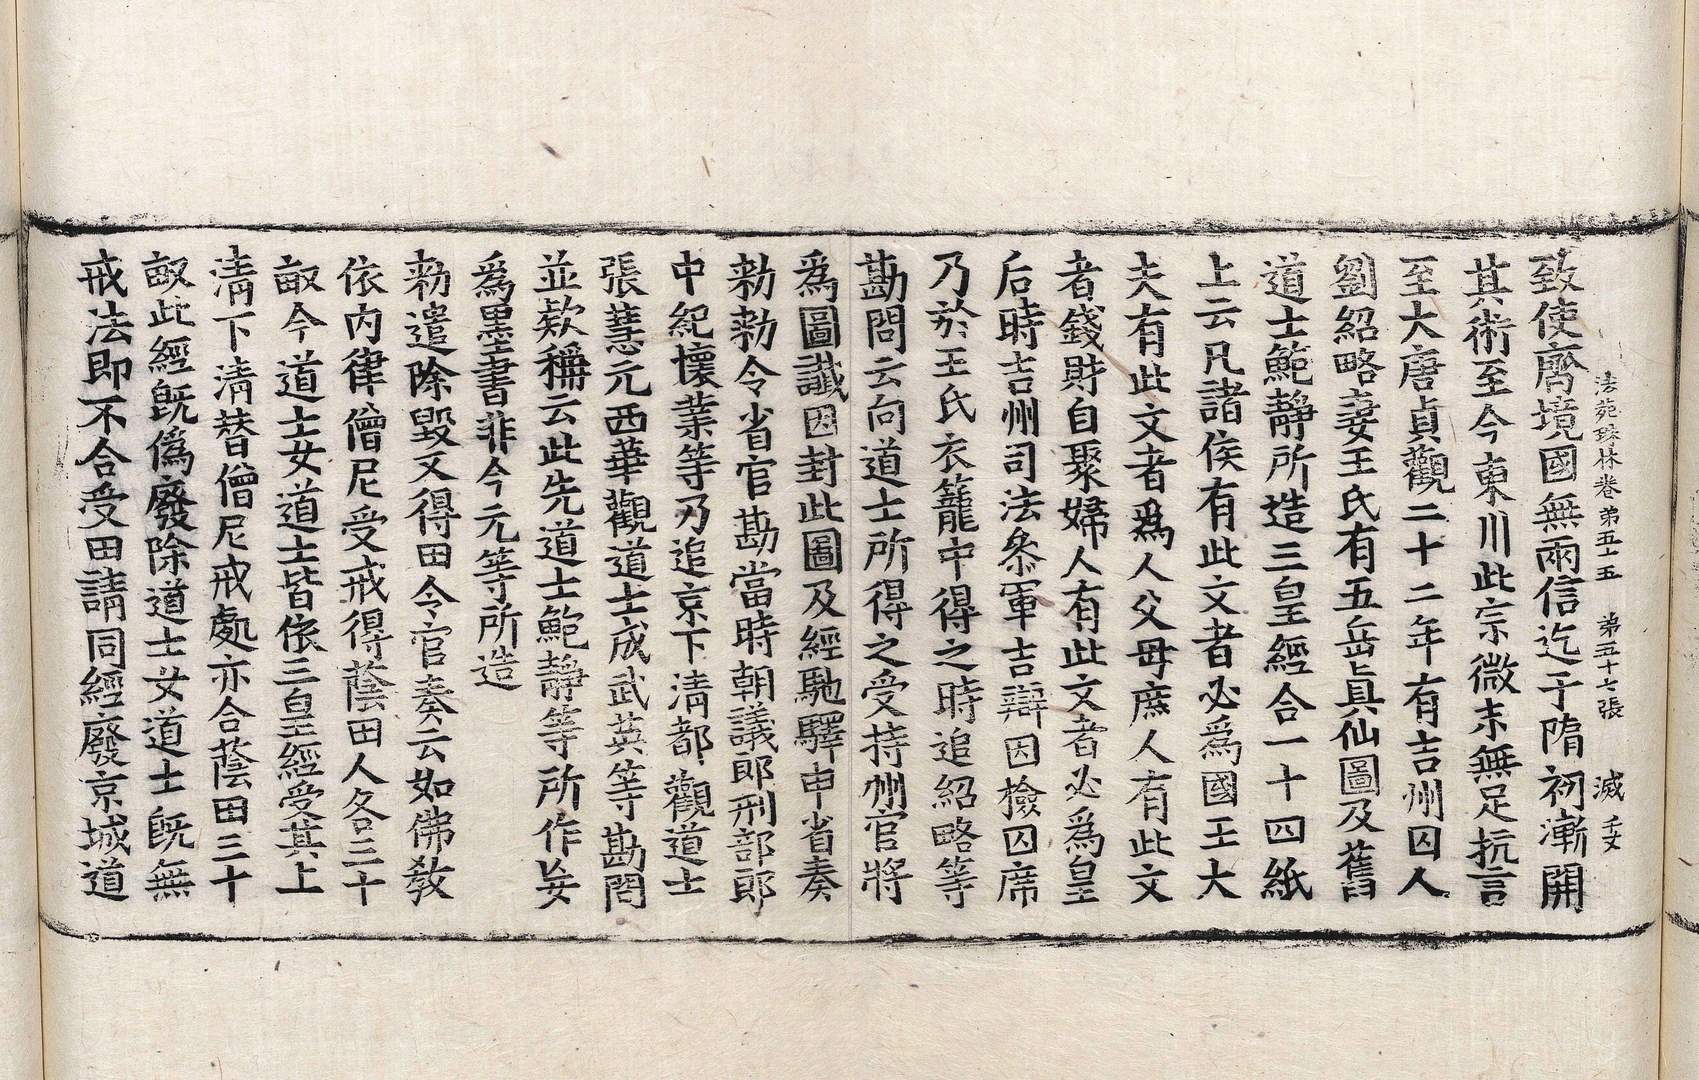 法苑珠林卷第五十五　第五十七張　滅　壬女
致使齊境國無兩信迄于隋初漸開
其術至今東川此宗微末無足抗言
至大唐貞觀二十二年有吉州囚人
劉紹略妻王氏有五岳真仙圖及舊
道士鮑靜所造三皇經合一十四紙
上云凡諸侯有此文者必爲國王大
夫有此文者爲人父母庶人有此文
者錢財自聚婦人有此文者必爲皇
后時吉州司法叅軍吉辯因檢囚席
乃於王氏衣籠中得之時追紹略等
勘問云向道士所得之受持州官將
爲圖讖因封此圖及經馳驛申省奏
勑勑令省官勘當時朝議郎刑部郎
中紀懷業等乃追京下清都觀道士
張慧元西華觀道士成武英等勘問
並款稱云此先道士鮑靜等所作妄
爲墨書非今元等所造
勑遣除毀又得田令官奏云如佛教
依內律僧尼受戒得蔭田人各三十
畝今道士女道士皆依三皇經受其上
清下清替僧尼戒處亦合蔭田三十
畝此經旣僞廢除道士女道士旣無
戒法即不合受田請同經廢京城道